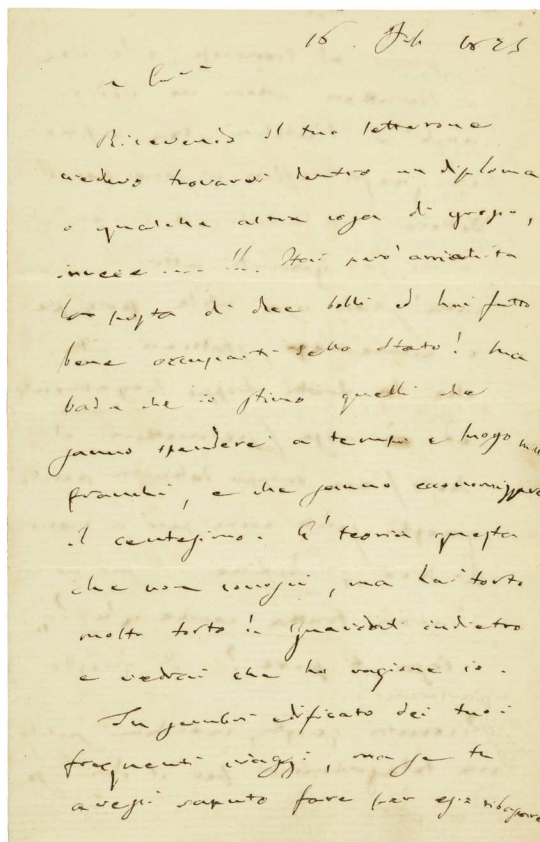 16. Feb 1875
Ricevendo il tuo letterone
credevo trovarvi dentro un diploma
o qualche altra cosa di grosso,
invece .... !!. Hai però arricchita
la posta di due bolli ed hai fatto
bene occuparti dello Stato! Ma
bada che io stimo quelli che
sanno spendere a tempo e luogo mille
franchi, e che sanno economizzare
il centesimo. È teoria questa
che non conosci, ma hai torto
molto torto!! Guardati indietro
e vedrai che ho ragione io.
Tu sembri edificato dei tuoi
frequenti viaggi, ma se tu
avessi saputo fare per